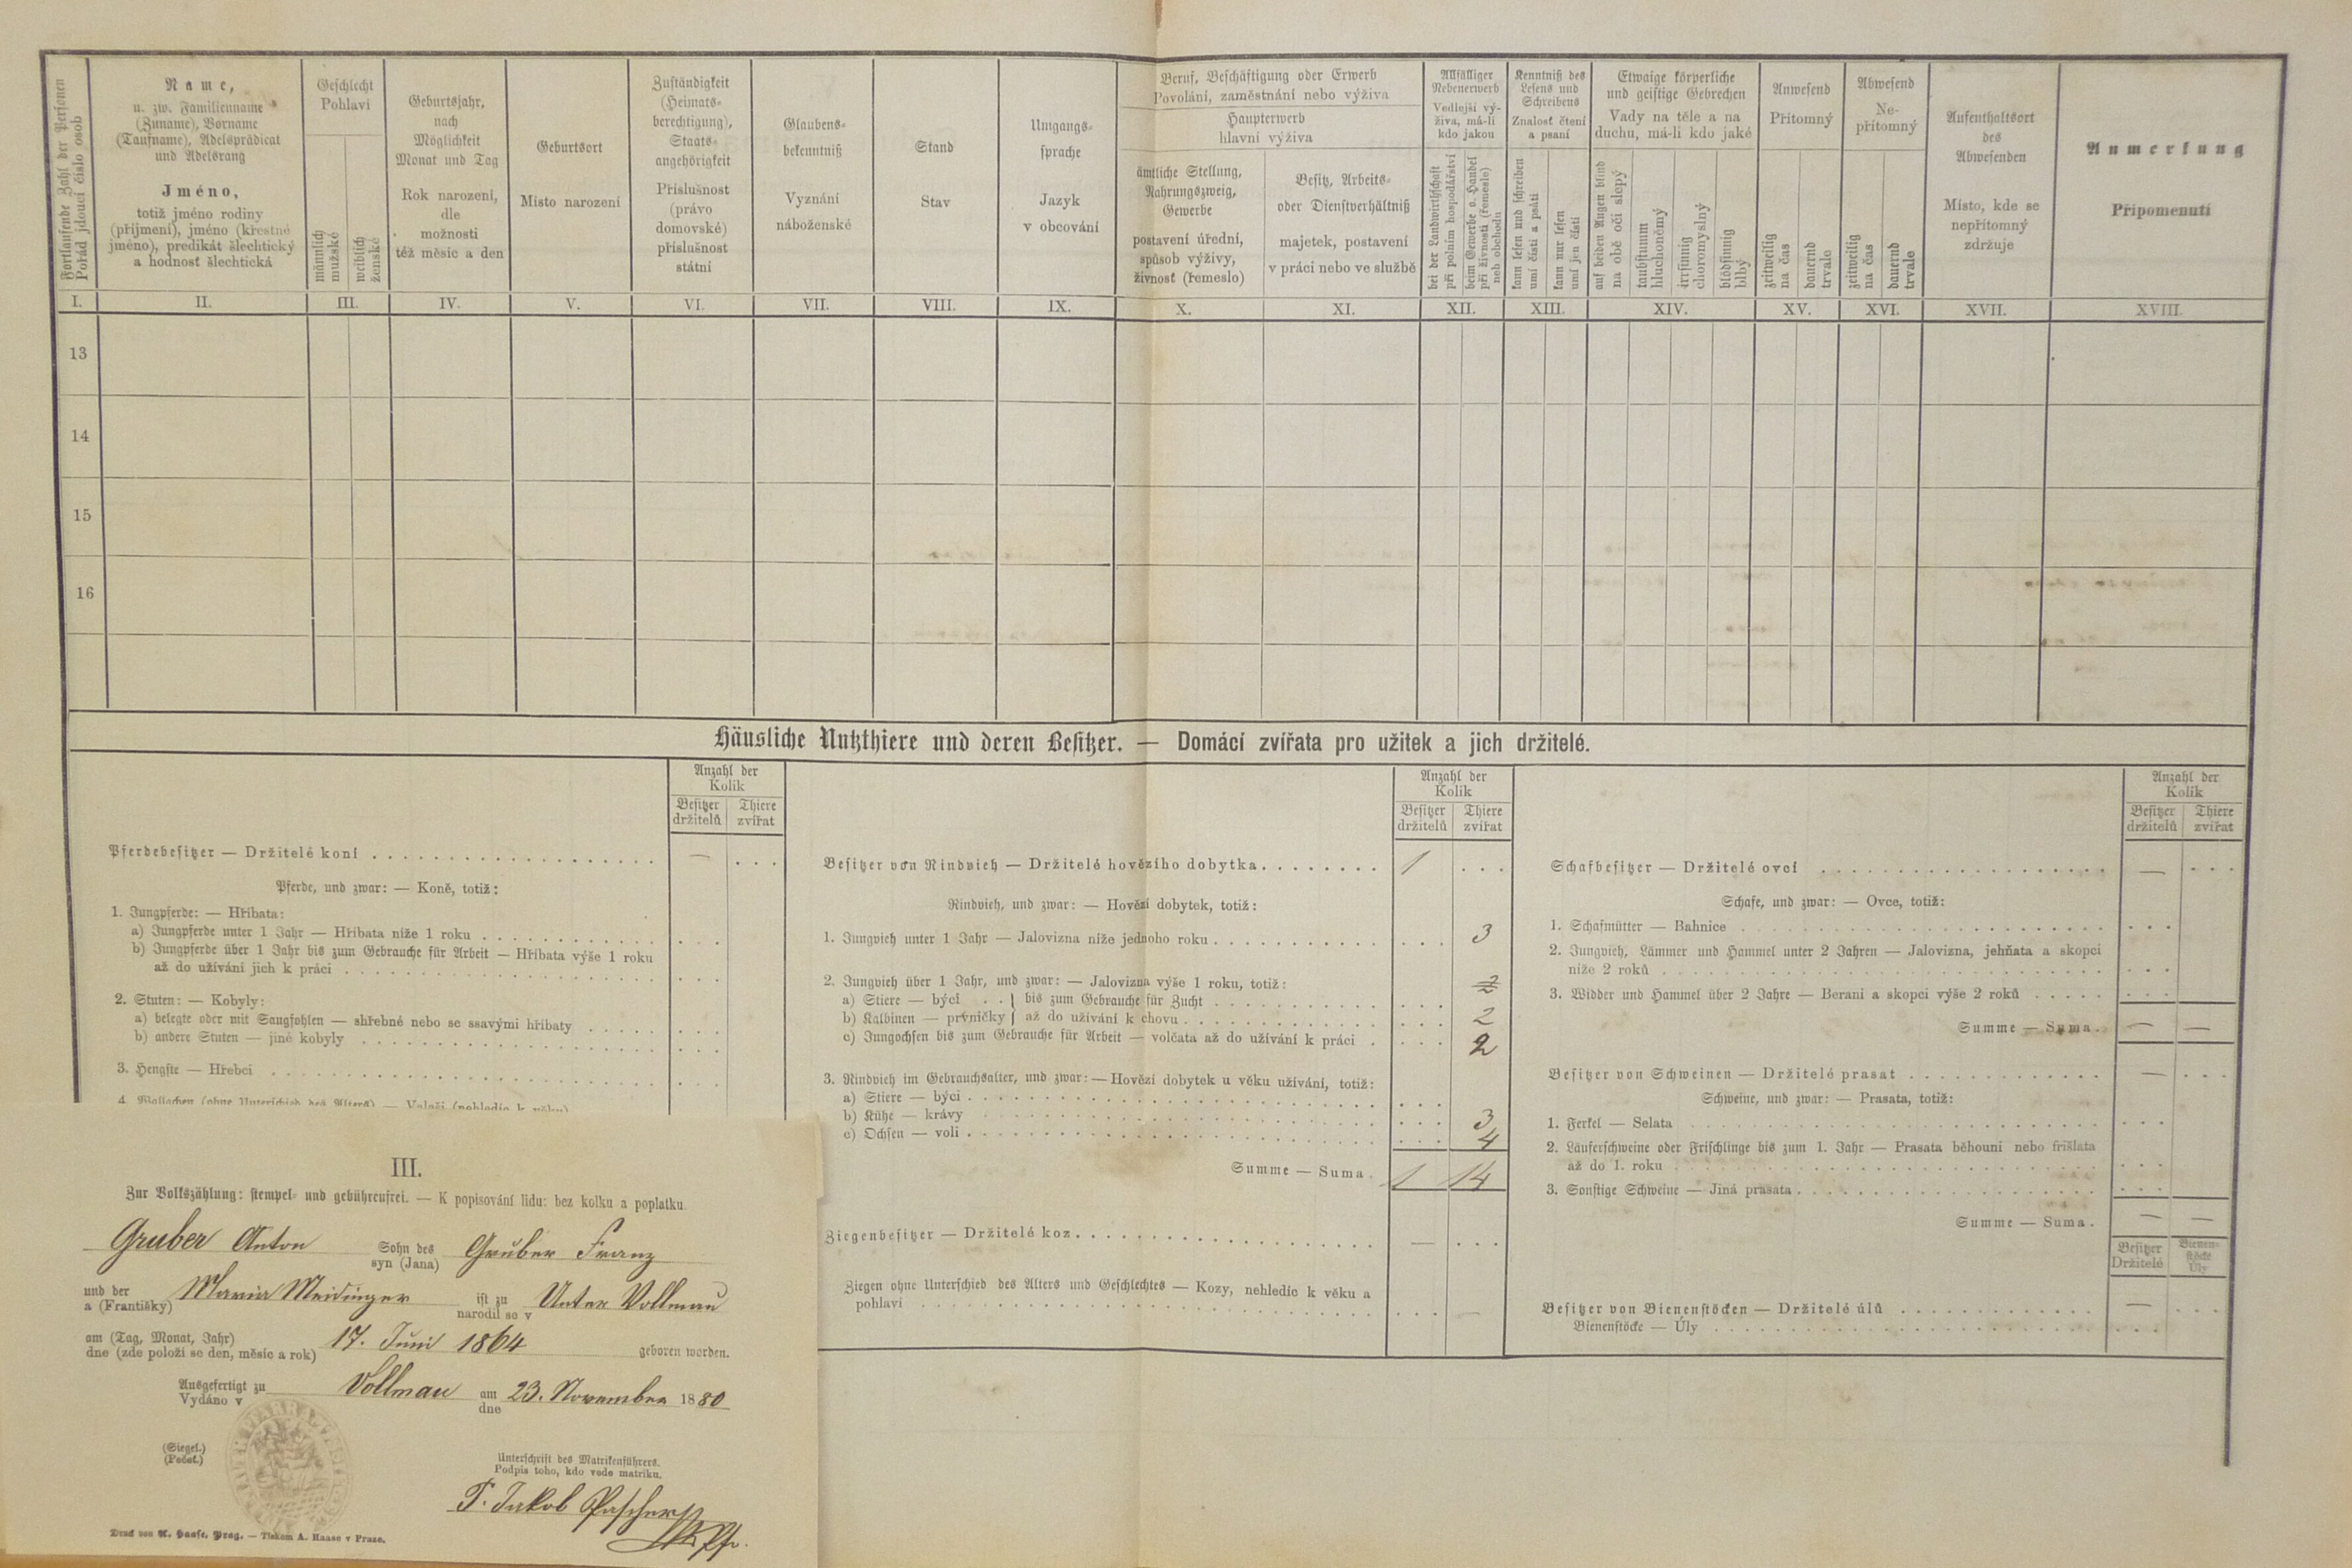 Fortlaufende Zahl der Personen
Pořád jdoucí číslo osob
Name,
u. zw. Familienname
(Zuname), Vorname
(Taufname), Adelsprädicat
und Adelsrang
Jméno,
totiž jméno rodiny
(příjmení), jméno (křestné
jméno), predikát šlechtický
a hodnosť šlechtická
Geschlecht
Pohlaví
männlich
mužské
weiblich
ženské
Geburtsjahr,
nach
Möglichkeit
Monat und Tag
Rok narození,
dle
možnosti
též měsíc a den
Geburtsort
Místo narození
Zuständigkeit
(Heimats-
berechtigung),
Staats-
angehörigkeit
Příslušnost
(právo
domovské)
příslušnost
státní
Glaubens-
bekenntniß
Vyznání
náboženské
Stand
Stav
Umgangs-
sprache
Jazyk
v obcování
Beruf, Beschäftigung oder Erwerb
Povolání, zaměstnání nebo výživa
Haupterwerb
hlavní výživa
ämtliche Stellung,
Nahrungszweig,
Gewerbe
postavení úřední,
spůsob výživy,
živnosť (řemeslo)
Besitz, Arbeits-
oder Dienstverhältniß
majetek, postavení
v práci nebo ve službě
Allfälliger
Nebenerwerb
Vedlejší vý-
živa, má-li
kdo jakou
bei der Landwirthschaft
při polním hospodářství
beim Gewerbe o. Handel
při živnosti (řemesle)
neb obchodu
Kenntniß des
Lesens und
Schreibens
Znalosť čtení
a psaní
kann lesen und schreiben
umí čísti a psáti
kann nur lesen
umí jen čísti
Etwaige körperliche
und geistige Gebrechen
Vady na těle a na
duchu, má-li kdo jaké
auf beiden Augen blind
na obě oči slepý
taubstumm
hluchoněmý
irrsinnig
choromyslný
blödsinnig
blbý
Anwesend
Přítomný
zeitweilig
na čas
dauernd
trvale
Abwesend
Ne-
přítomný
zeitweilig
na čas
dauernd
trvale
Aufenthaltsort
des
Abwesenden
Místo, kde se
nepřítomný
zdržuje
Anmerkung
Připomenutí
I. II. III. IV. V. VI. VII. VIII. IX. X. XI. XII. XIII. XIV. XV. XVI. XVII. XVIII.
13
14
15
16
Häusliche Nutzthiere und deren Besitzer. — Domácí zvířata pro užitek a jich držitelé.
Anzahl der
Kolik
Besitzer Thiere
držitelů zvířat
Pferdebesitzer — Držitelé koní . . . —
Pferde, und zwar: — Koně, totiž:
1. Jungpferde: — Hříbata:
a) Jungpferde unter 1 Jahr — Hříbata níže 1 roku
b) Jungpferde über 1 Jahr bis zum Gebrauche für Arbeit — Hříbata výše 1 roku
až do užívání jich k práci
2. Stuten: — Kobyly:
a) belegte oder mit Saugfohlen — shřebné nebo se ssavými hříbaty
b) andere Stuten — jiné kobyly
3. Hengste — Hřebci
4. Wallachen (ohne Unterschied des Alters) — Valaši (nehledíc k věku)
Anzahl der
Kolik
Besitzer Thiere
držitelů zvířat
Besitzer von Rindvieh — Držitelé hovězího dobytka. 1
Rindvieh, und zwar: — Hovězí dobytek, totiž:
1. Jungvieh unter 1 Jahr — Jalovizna níže jednoho roku. 3
2. Jungvieh über 1 Jahr, und zwar: — Jalovizna výše 1 roku, totiž: 2
a) Stiere — býci . . } bis zum Gebrauche für Zucht
b) Kalbinen — prvničky } až do užívání k chovu. 2
c) Jungochsen bis zum Gebrauche für Arbeit — volčata až do užívání k práci . 2
3. Rindvieh im Gebrauchsalter, und zwar: — Hovězí dobytek u věku užívání, totiž:
a) Stiere — býci
b) Kühe — krávy 3
c) Ochsen — voli 4
Summe — Suma. 1 14
Ziegenbesitzer — Držitelé koz. —
Ziegen ohne Unterschied des Alters und Geschlechtes — Kozy, nehledíc k věku a
pohlaví —
Anzahl der
Kolik
Besitzer Thiere
držitelů zvířat
Schafbesitzer — Držitelé ovcí —
Schafe, und zwar: — Ovce, totiž:
1. Schafmütter — Bahnice
2. Jungvieh, Lämmer und Hammel unter 2 Jahren — Jalovizna, jehňata a skopci
níže 2 roků
3. Widder und Hammel über 2 Jahre — Berani a skopci výše 2 roků
Summe — Suma. — —
Besitzer von Schweinen — Držitelé prasat —
Schweine, und zwar: — Prasata, totiž:
1. Ferkel — Selata
2. Läuferschweine oder Frischlinge bis zum 1. Jahr — Prasata běhouni nebo frišlata
až do 1. roku
3. Sonstige Schweine — Jiná prasata
Summe — Suma. — —
Besitzer Bienen-
stöcke
Držitelé Úly
Besitzer von Bienenstöcken — Držitelé úlů —
Bienenstöcke — Úly
III.
Zur Volkszählung: stempel- und gebührenfrei. — K popisování lidu: bez kolku a poplatku.
Gruber Anton Sohn des Gruber Franz
syn (Jana)
und der Maria Meidinger ist zu Unter Vollmau
a (Františky) narodil se v
am (Tag, Monat, Jahr) 17. Juni 1864 geboren worden.
dne (zde položí se den, měsíc a rok)
Ausgefertigt zu Vollmau am 23. November 1880
Vydáno v dne
(Siegel.)
(Pečeť.)
Unterschrift des Matrikenführers.
Podpis toho, kdo vede matriku.
P. Jakob Pascher
Druck von A. Haase, Prag. — Tiskem A. Haase v Praze.